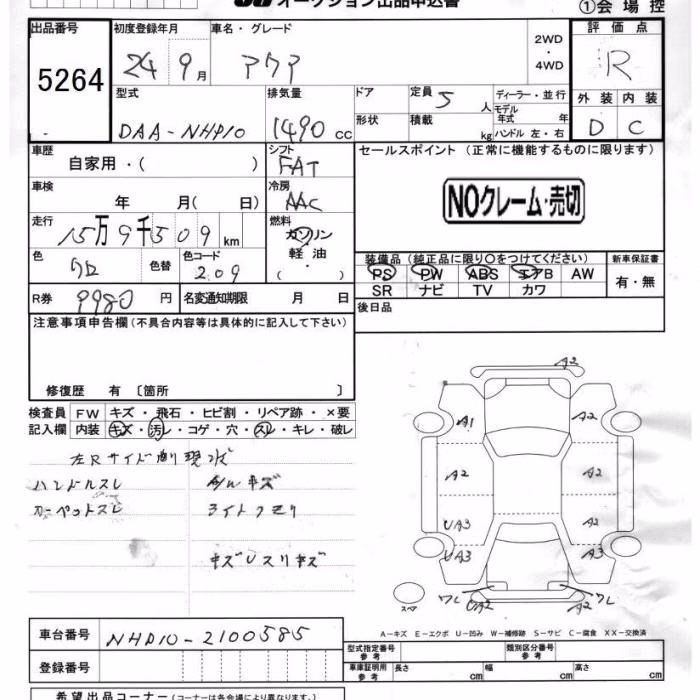 オークション出品申込書
①会場控
出品番号 初度登録年月 車名・グレード 2WD・4WD 評価点
5264 24 9月 アクア R
型式 排気量 ドア 定員 5人 ディーラー・並行 外装 内装
モデル年式 年
DAA-NHP10 1490cc 形状 積載 kg ハンドル 左・右 D C
車歴 シフト セールスポイント (正常に機能するものに限ります)
自家用・( ) FAT
車検 冷房
年 月( 日) AAC NOクレーム・売切
走行 燃料
15万9千509km ガソリン
軽油
・( )
色 色替 色コード 装備品(純正品に限り○をつけてください) 新車保証書
209 PS PW ABS エアB AW 有・無
SR ナビ TV カワ
R券 9980円 名変通知期限 月 日 後日品
注意事項申告欄(不具合内容等は具体的に記入して下さい)
修復歴 有 〔箇所 〕
検査員 FW キズ・飛石・ヒビ割・リペア跡・×要
記入欄 内装 キズ・汚レ・コゲ・穴・スレ・キレ・破レ
左Rサイド
ハンドルスレ キズ
カーペットスレ ライトクモリ
キズUスリキズ
A2
A1 A2
A2 A2
UA3 A2
UA3 A3
ワレ UA2 ワレ
スペア
A-キズ E-エクボ U-凹み W-補修跡 S-サビ C-腐食 XX-交換済
車台番号 NHP10-2100585
登録番号
型式指定番号 参考 類別区分番号 参考
車庫証明用 参考 長さ cm 幅 cm 高さ cm
希望出品コーナー(コーナーは各会場により異なります)